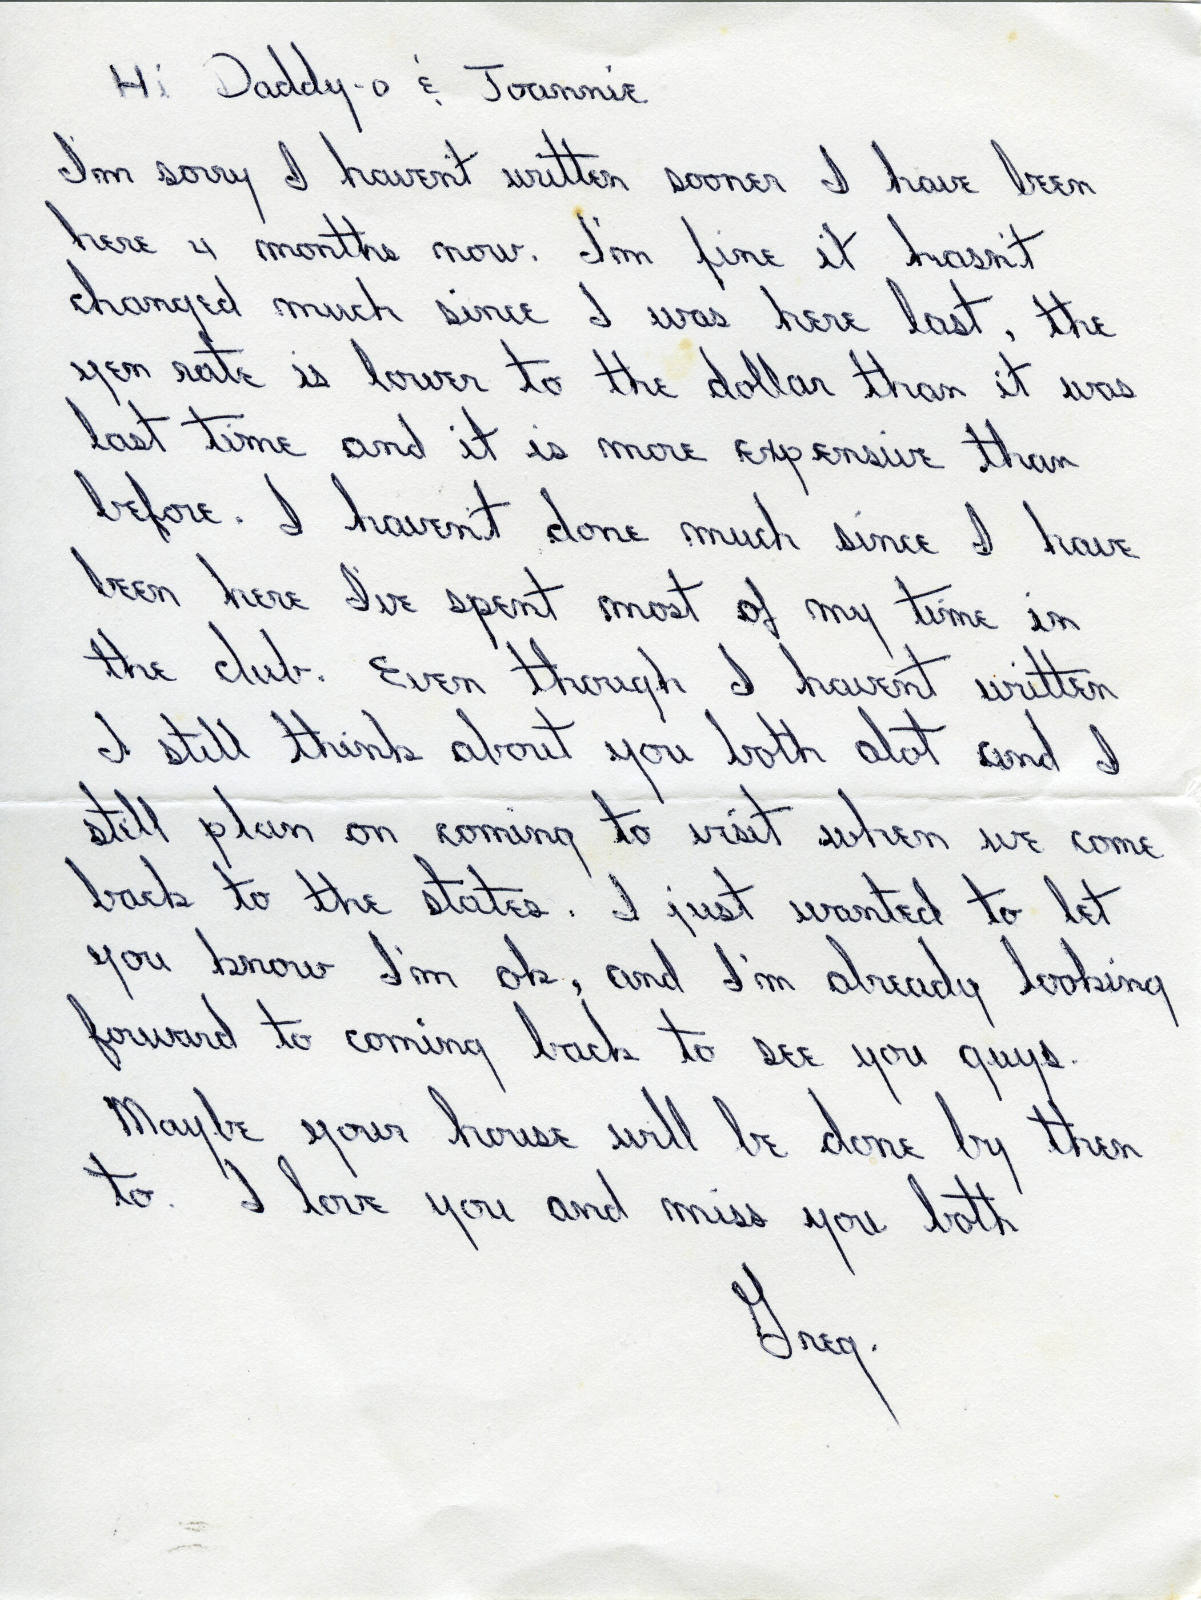 Hi Daddy-o & Joannie
I'm sorry I haven't written sooner I have been
here 4 months now. I'm fine it hasn't
changed much since I was here last, the
yen rate is lower to the dollar than it was
last time and it is more expensive than
before. I haven't done much since I have
been here I've spent most of my time in
the club. Even though I haven't written
I still think about you both alot and I
still plan on coming to visit when we come
back to the states. I just wanted to let
you know I'm ok, and I'm already looking
forward to coming back to see you guys.
Maybe your house will be done by then
to. I love you and miss you both
Greg.